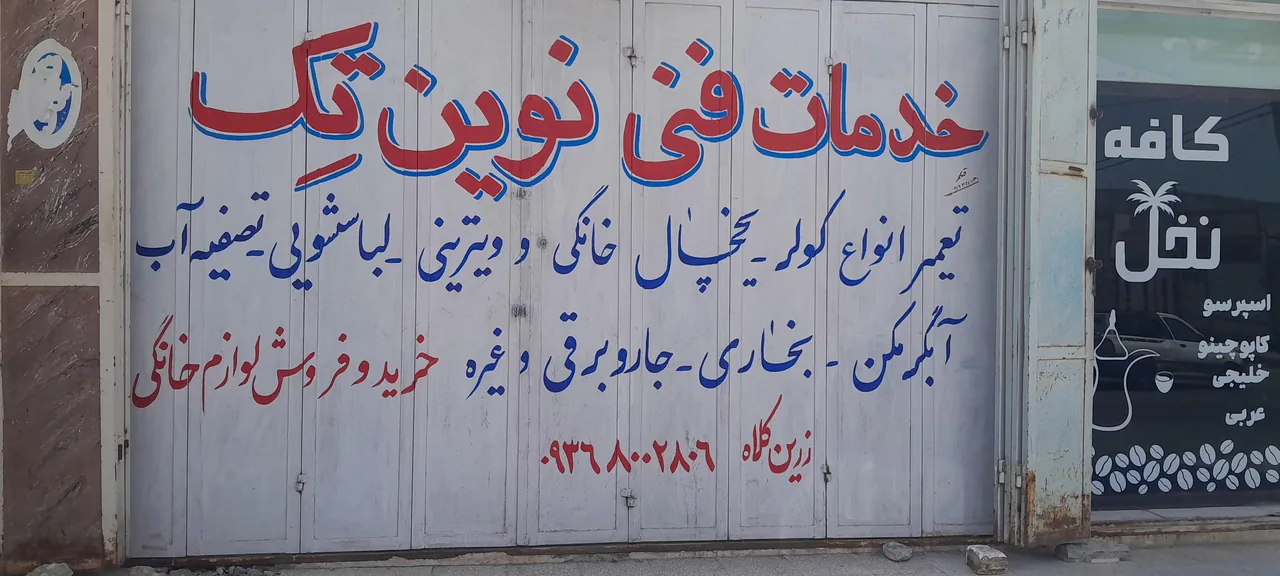 خدمات فنی نوین تک
تعمیر انواع کولر - یخچال خانگی و ویترینی - لباسشویی - تصفیه آب
آبگرمکن - بخاری - جاروبرقی و غیره خرید و فروش لوازم خانگی
زرین کلاه ۰۹۳۶۸۰۰۲۸۰۶
کافه
نخل
اسپرسو
کاپوچینو
خلیجی
عربی